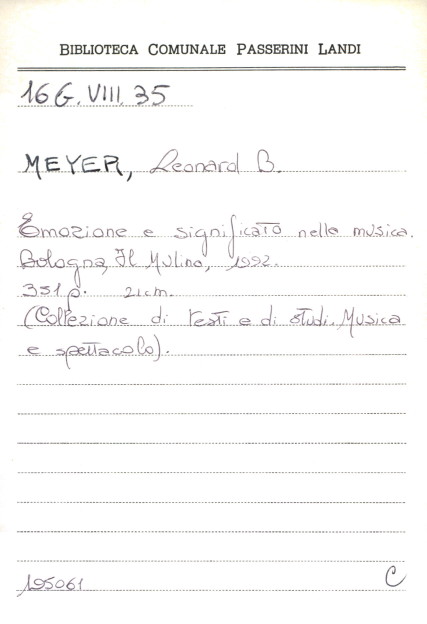 BIBLIOTECA COMUNALE PASSERINI LANDI
16 G. VIII. 35
MEYER, Leonard B.
Emozione e significato nella musica.
Bologna, Il Mulino, 1992.
351 p. 21 cm.
(Collezione di testi e di studi. Musica
e spettacolo).
195061 C